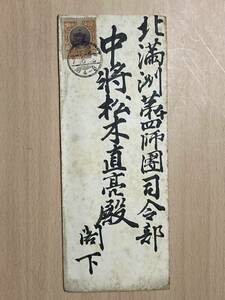 北満洲第四師團司令部
中將松木直亮殿
閣下